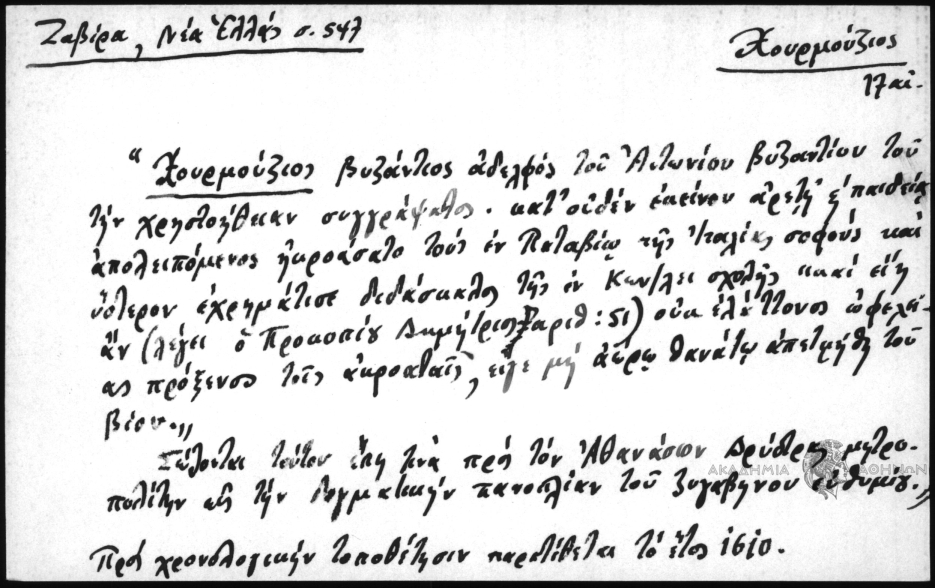 Ζαβίρα, Νέα Ἑλλάς σ. 547
Χουρμούζιος
17 αἰ.
"Χουρμούζιος βυζάντιος ἀδελφός τοῦ Ἀντωνίου βυζαντίου τοῦ
τήν χρηστοήθειαν συγγράψαντος. κατ' οὐδέν ἐκείνου ἀρετῇ ἐ παιδείᾳ
ἀπολειπόμενος ἠκροάσατο τούς ἐν Παταβίῳ τῆς Ἰταλίας σοφούς καί
ὕστερον ἐχρημάτισε διδάσκαλος τῆς ἐν Κων/λει σχολῆς καί εἴη
ἄν (λέγει ὁ Προκοπίου Δημήτριος ἀριθ: 51) οὐκ ἐλάττονος ὠφελεί-
ας πρόξενος τοῖς ἀκροαταῖς, εἴγε μή ἀώρῳ θανάτῳ ἀπετμήθη τοῦ
βίου.„
Σώζονται τούτου ἔπη τινά πρός τόν Ἀθανάσιον Δρύστρας μητρο-
πολίτην εἰς τήν δογματικήν πανοπλίαν τοῦ Ζυγαβηνοῦ Εὐθυμίου.„
Πρός χρονολογικήν τοποθέτησιν παρατίθεται τό ἔτος 1610.
ΑΚΑΔΗΜΙΑ ΑΘΗΝΩΝ